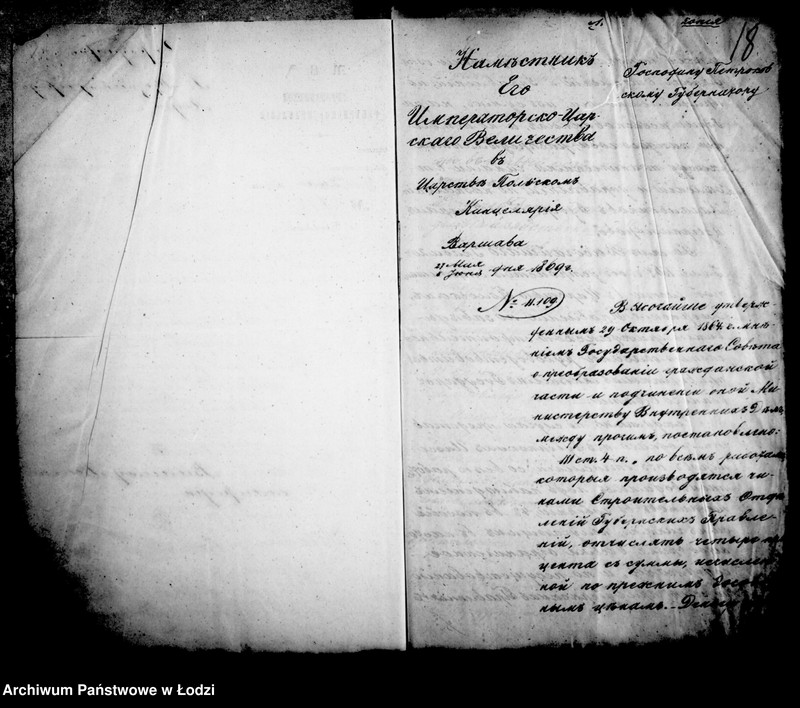 копія
18
Намѣстникъ
Его
Императорско-Цар-
скаго Величества
въ
Царствѣ Польскомъ
Канцелярія
Варшава
Мая
дня 1869 г.
№ 4109
Господину Петроков-
скому Губернатору
Высочайше утверж-
деннымъ 29 Октября 1867 г. мнѣ-
ніемъ Государственнаго Совѣта
о преобразованіи гражданской
части и подчиненіи оной Ми-
нистерству Внутреннихъ Дѣлъ
между прочимъ, постановлено:
ст. 4 п. „по всѣмъ работамъ
которыя производятся чи-
нами Строительныхъ Отдѣ-
леній Губернскихъ Правле-
ній, отчислять четыре про-
цента съ суммы, исчислен-
ной по прежнимъ
нымъ цѣнамъ.
Archiwum Państwowe w Łodzi